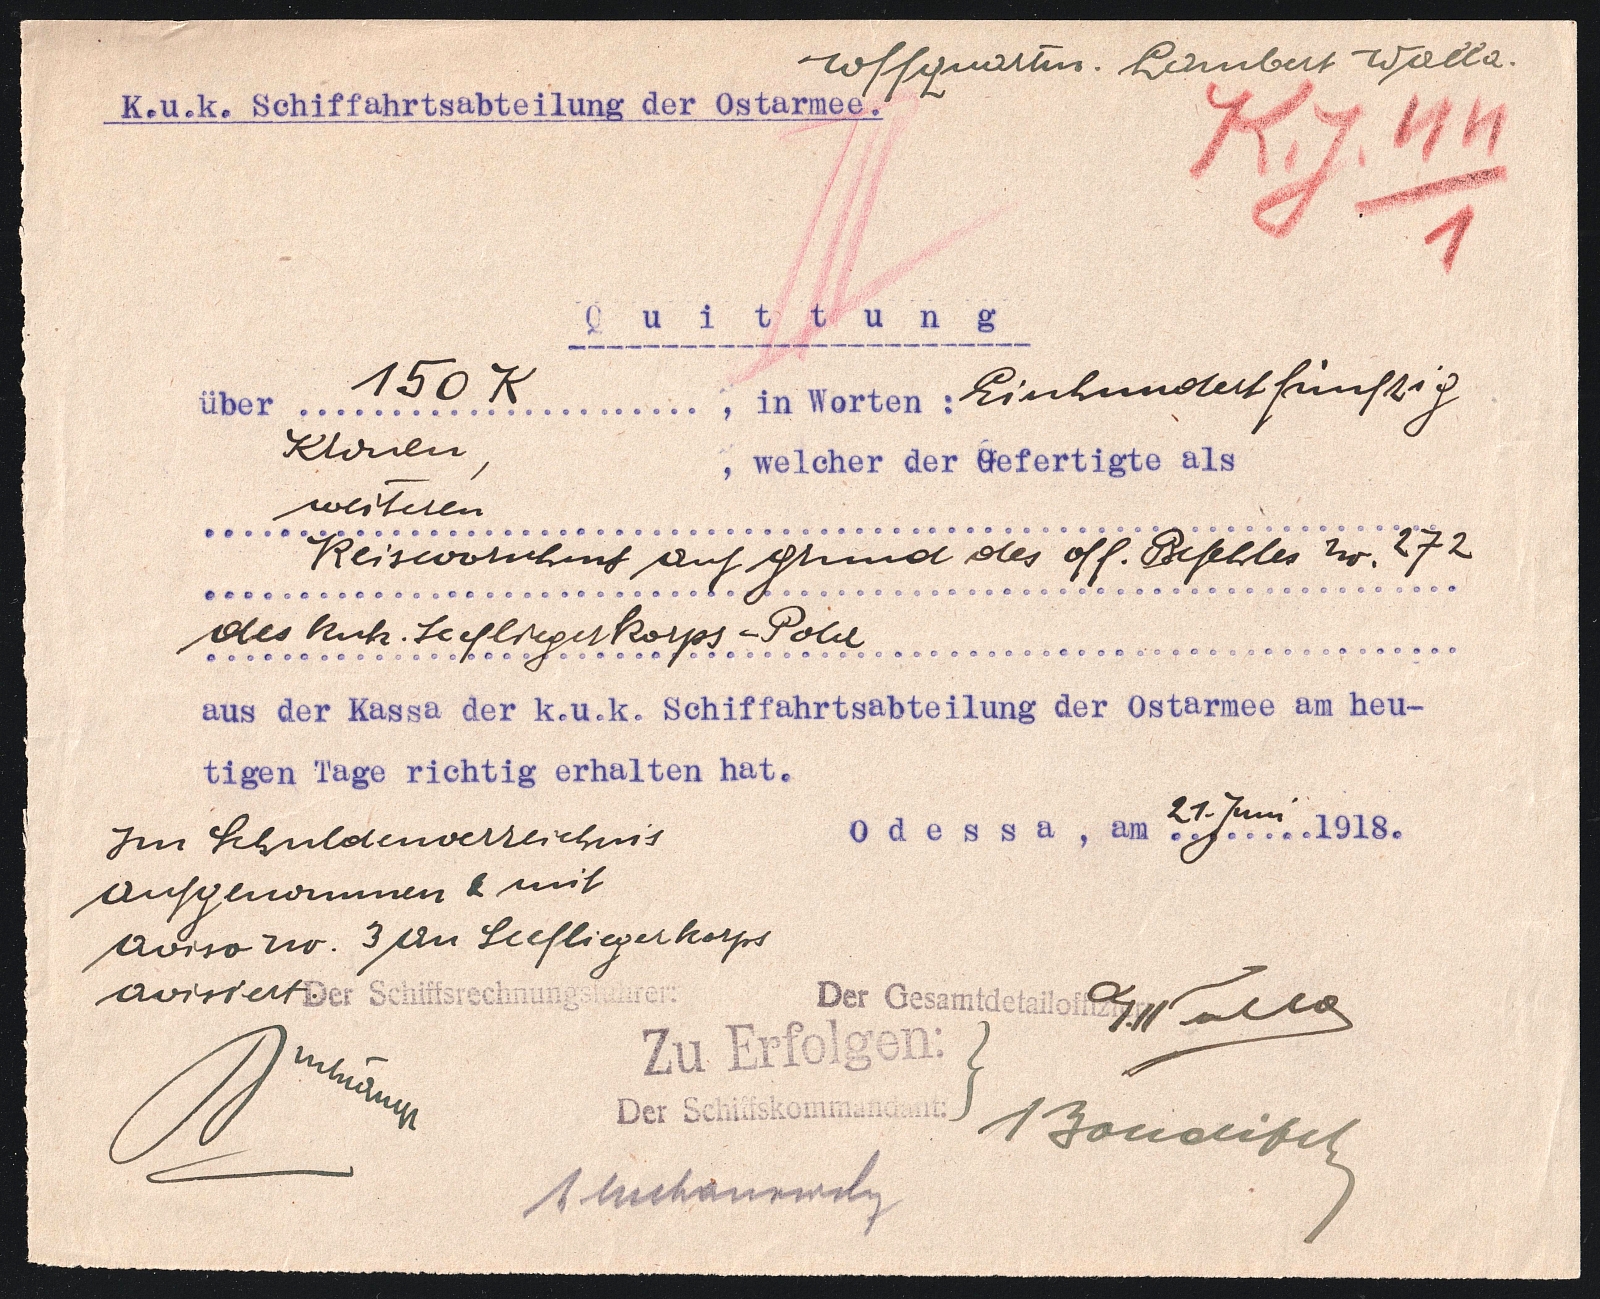 Lambert Walla.
K.u.k. Schiffahrtsabteilung der Ostarmee.
K.J. 44
1
Quittung
über 150 K, in Worten : Einhundertfünfzig
Kronen, , welcher der Gefertigte als
weiteren
Reisevorschuß auf grund des off. Befehles No. 272
des kuk. Seefliegerkorps - Pola
aus der Kassa der k.u.k. Schiffahrtsabteilung der Ostarmee am heu-
tigen Tage richtig erhalten hat.
Odessa, am 21. Juni 1918.
Im Schuldenverzeichnis
aufgenommen & mit
aviso No. 3 an Seefliegerkorps
avisiert.
Der Schiffsrechnungsführer:
Der Gesamtdetailoffizier:
Zu Erfolgen:
Der Schiffskommandant: